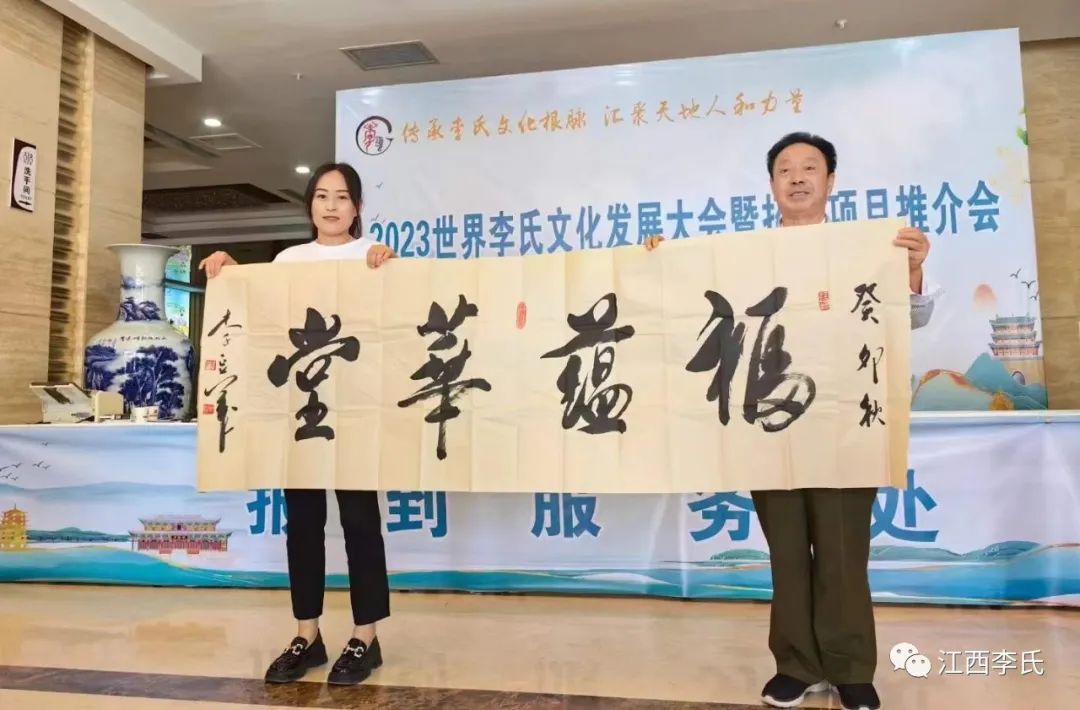 传承李氏文化根脉 汇聚天地人和力量
2023世界李氏文化发展大会暨 项目推介会
洗手间
癸卯秋
福蘊華堂
李立
报到服务处
江西李氏